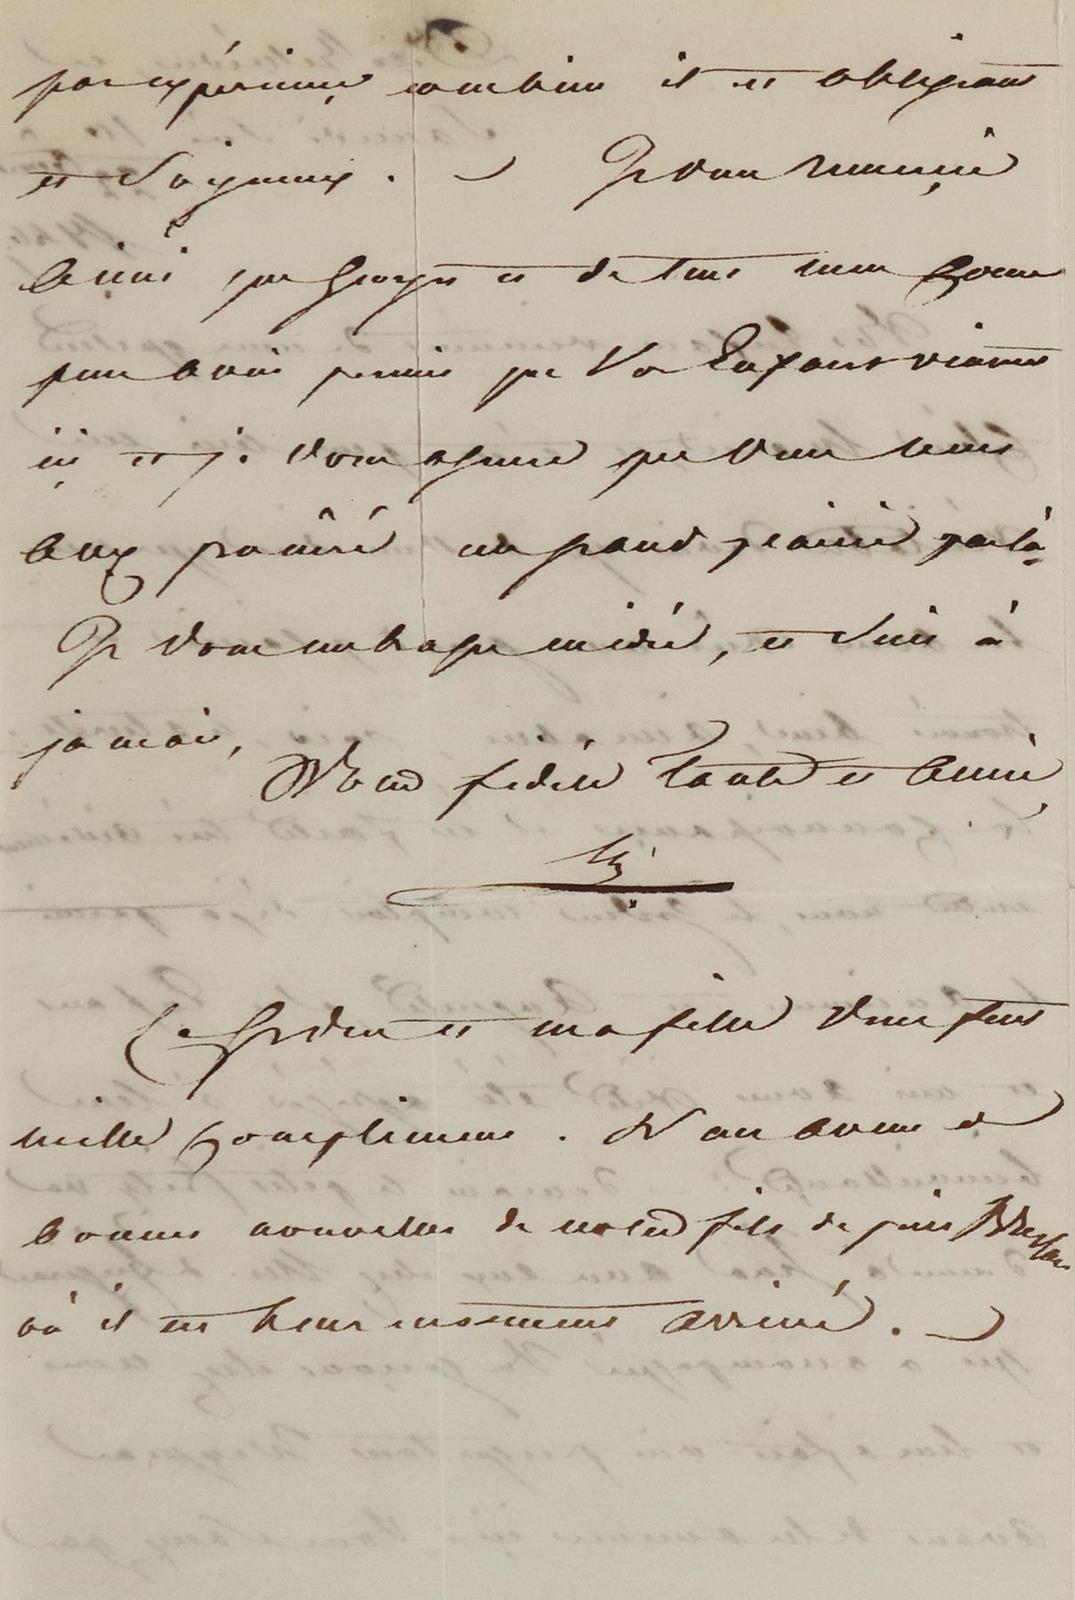 par expérience combien il est obligeant
et soigneux. Je vous remercie
ainsi que Georges et de tout mon Coeur
pour avoir permis que Vos Enfans viennent
ici et je vous assure que vous nous
avez procuré un grand plaisir par là.
Je vous embrasse, et suis à
jamais,
Votre fidèle Tante et Amie
Le Gr duc et ma fille vous font
mille Complimens. Nous avons de
bonnes nouvelles de notre fils depuis Breslau
où il est heureusement arrivé.